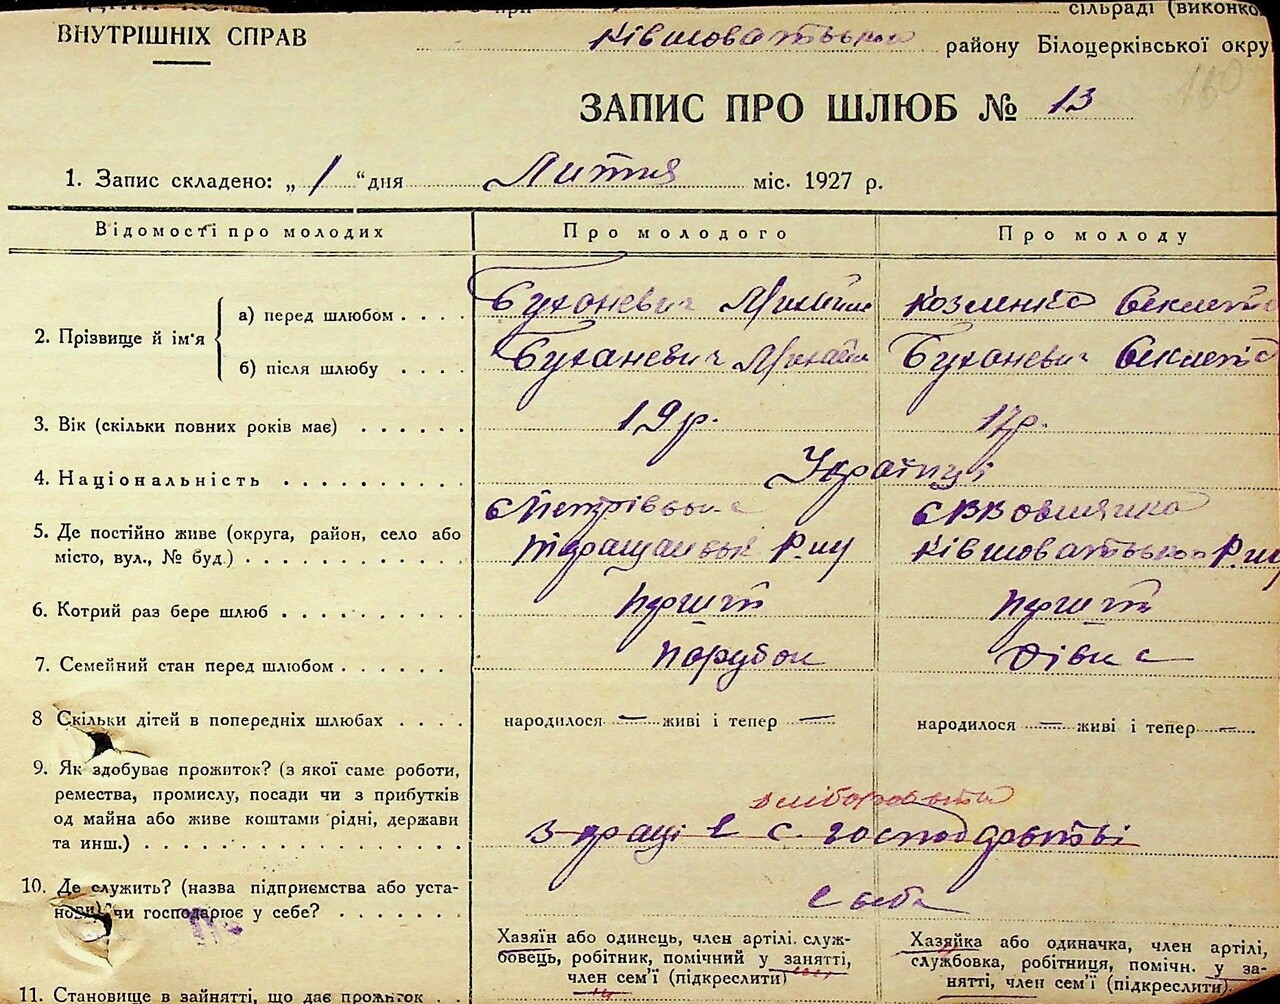 сільраді (виконко
ВНУТРІШНІХ СПРАВ Ківшоватської району Білоцерківської окру
160
ЗАПИС ПРО ШЛЮБ № 13
1. Запис складено: „ 1 “ дня Лютня міс. 1927 р.
Відомості про молодих Про молодого Про молоду
2. Прізвище й ім'я
а) перед шлюбом . . . . Буханевич Михайло Козленко Векле
б) після шлюбу . . . . Буханевич Михайло Буханевич Векле
3. Вік (скільки повних років має) . . . . . . 19 р. 17 р.
4. Національність . . . . . . . . . . Українці
5. Де постійно живе (округа, район, село або
місто, вул., № буд.) . . . . . . . . . . Р-ну Ківшоватського Р-ну
6. Котрий раз бере шлюб . . . . . . . . . перший перший
7. Семейний стан перед шлюбом . . . . . . парубок дівка
8 Скільки дітей в попередніх шлюбах . . . . народилося — живі і тепер — народилося — живі і тепер —
9. Як здобуває прожиток? (з якої саме роботи,
ремества, промислу, посади чи з прибутків
од майна або живе коштами рідні, держави
та инш.) . . . . . . . . . . . . . . . з праці в с. господарстві
10. Де служить? (назва підприємства або уста-
нови) чи господарює у себе? . . . . . . .
Хазяїн або одинець, член артілі, служ-
бовець, робітник, помічний у занятті,
член сем'ї (підкреслити)
Хазяйка або одиначка, член артілі,
службовка, робітниця, помічн. у за-
нятті, член сем'ї (підкреслити)
11. Становище в зайнятті, що дає прожиток . .